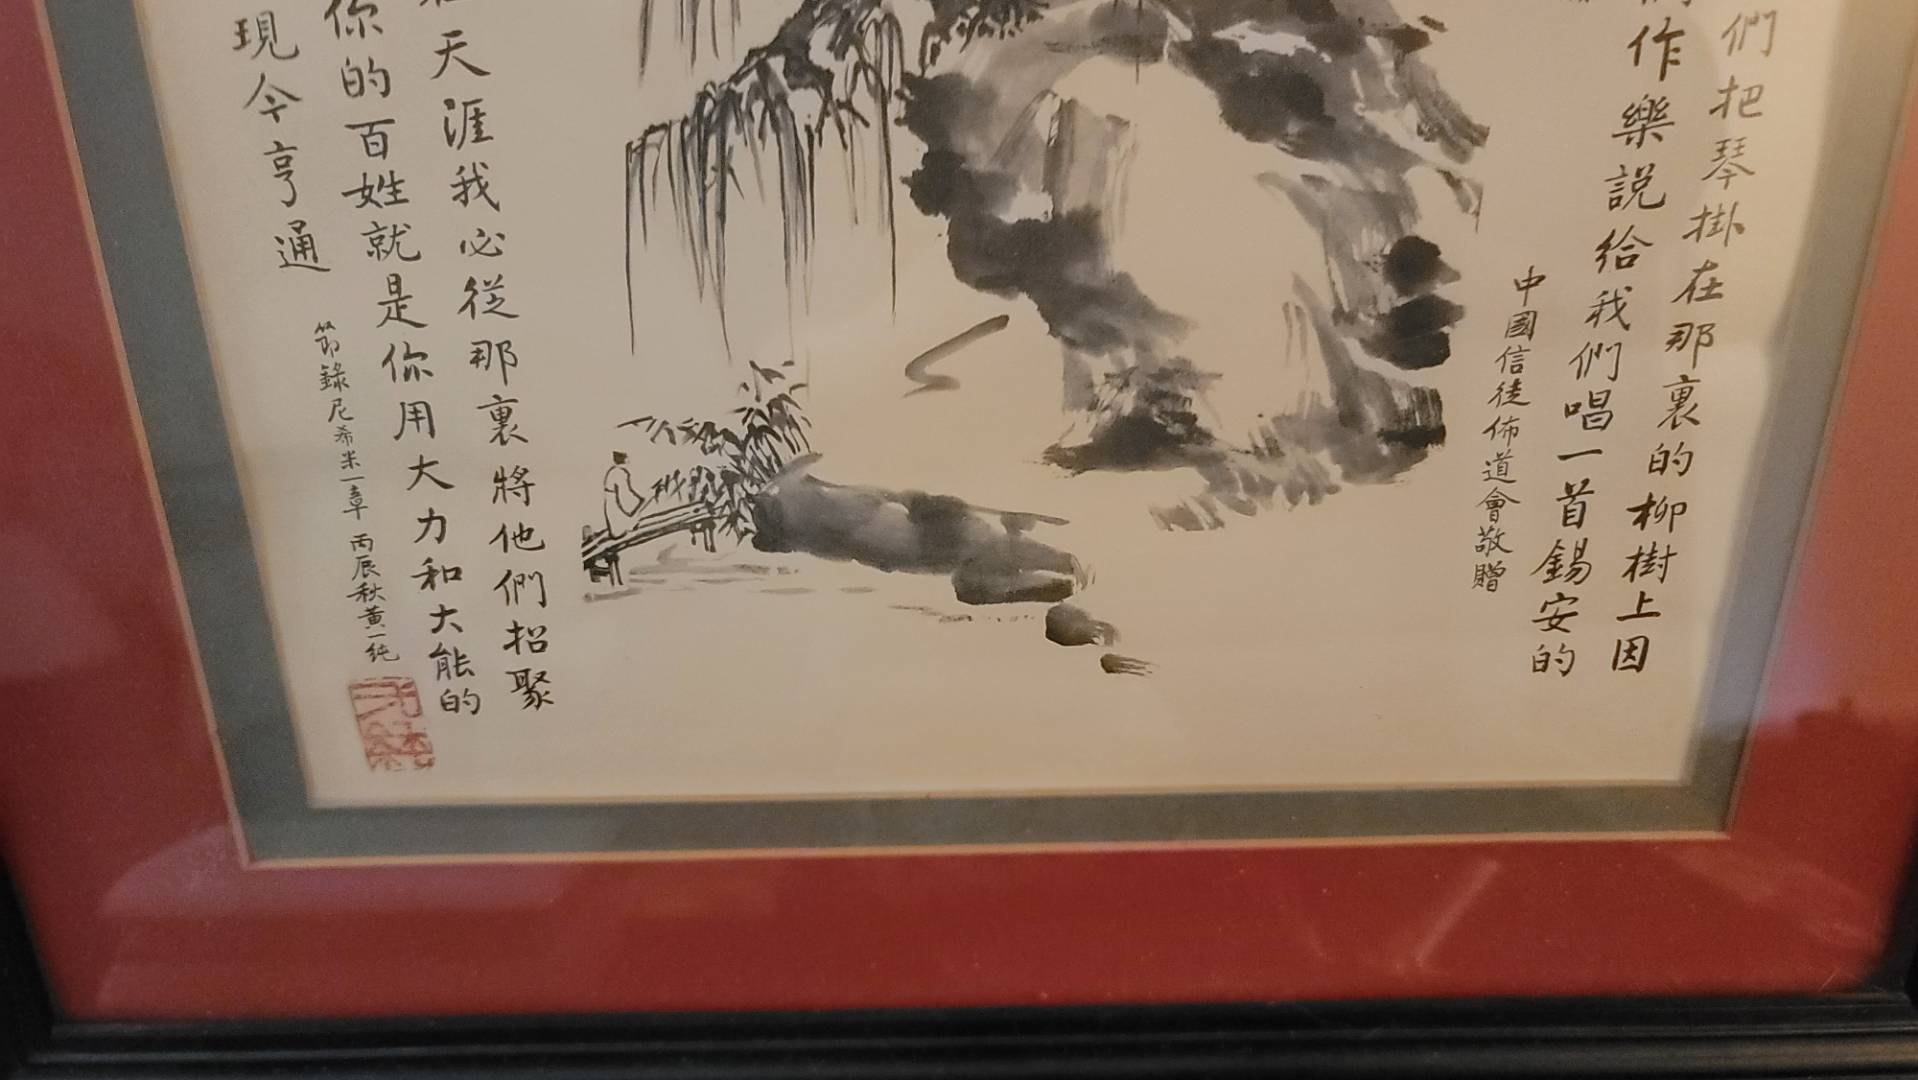 們把琴掛在那裏的柳樹上因
作樂説給我們唱一首錫安的
中國信徒佈道會敬贈
天涯我必從那裏將他們招聚
你的百姓就是你用大力和大能的
現今亨通
節錄尼希米一章 丙辰秋黃一純